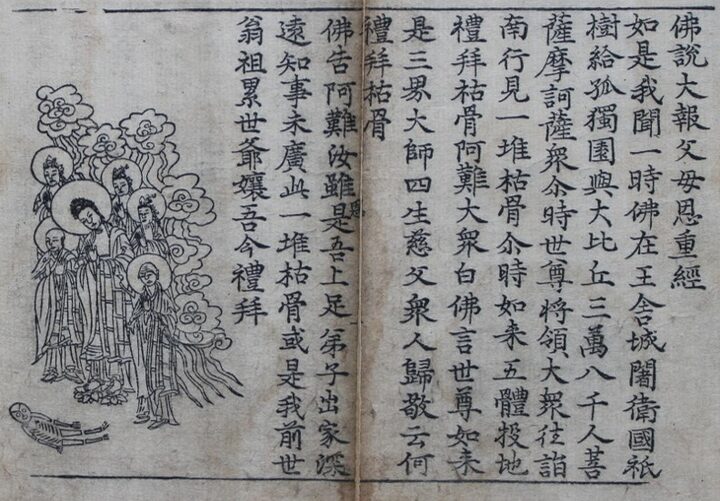 佛說大報父母恩重經
如是我聞一時佛在王舍城闍衛國祇
樹給孤獨園與大比丘三萬八千人菩
薩摩訶薩眾尒時世尊將領大眾往詣
南行見一堆枯骨尒時如来五體投地
禮拜枯骨阿難大眾白佛言世尊如来
是三界大師四生慈父眾人歸敬云何
禮拜枯骨
佛告阿難汝雖是吾上足弟子出家深
遠知事未廣此一堆枯骨或是我前世
翁祖累世爺孃吾今禮拜